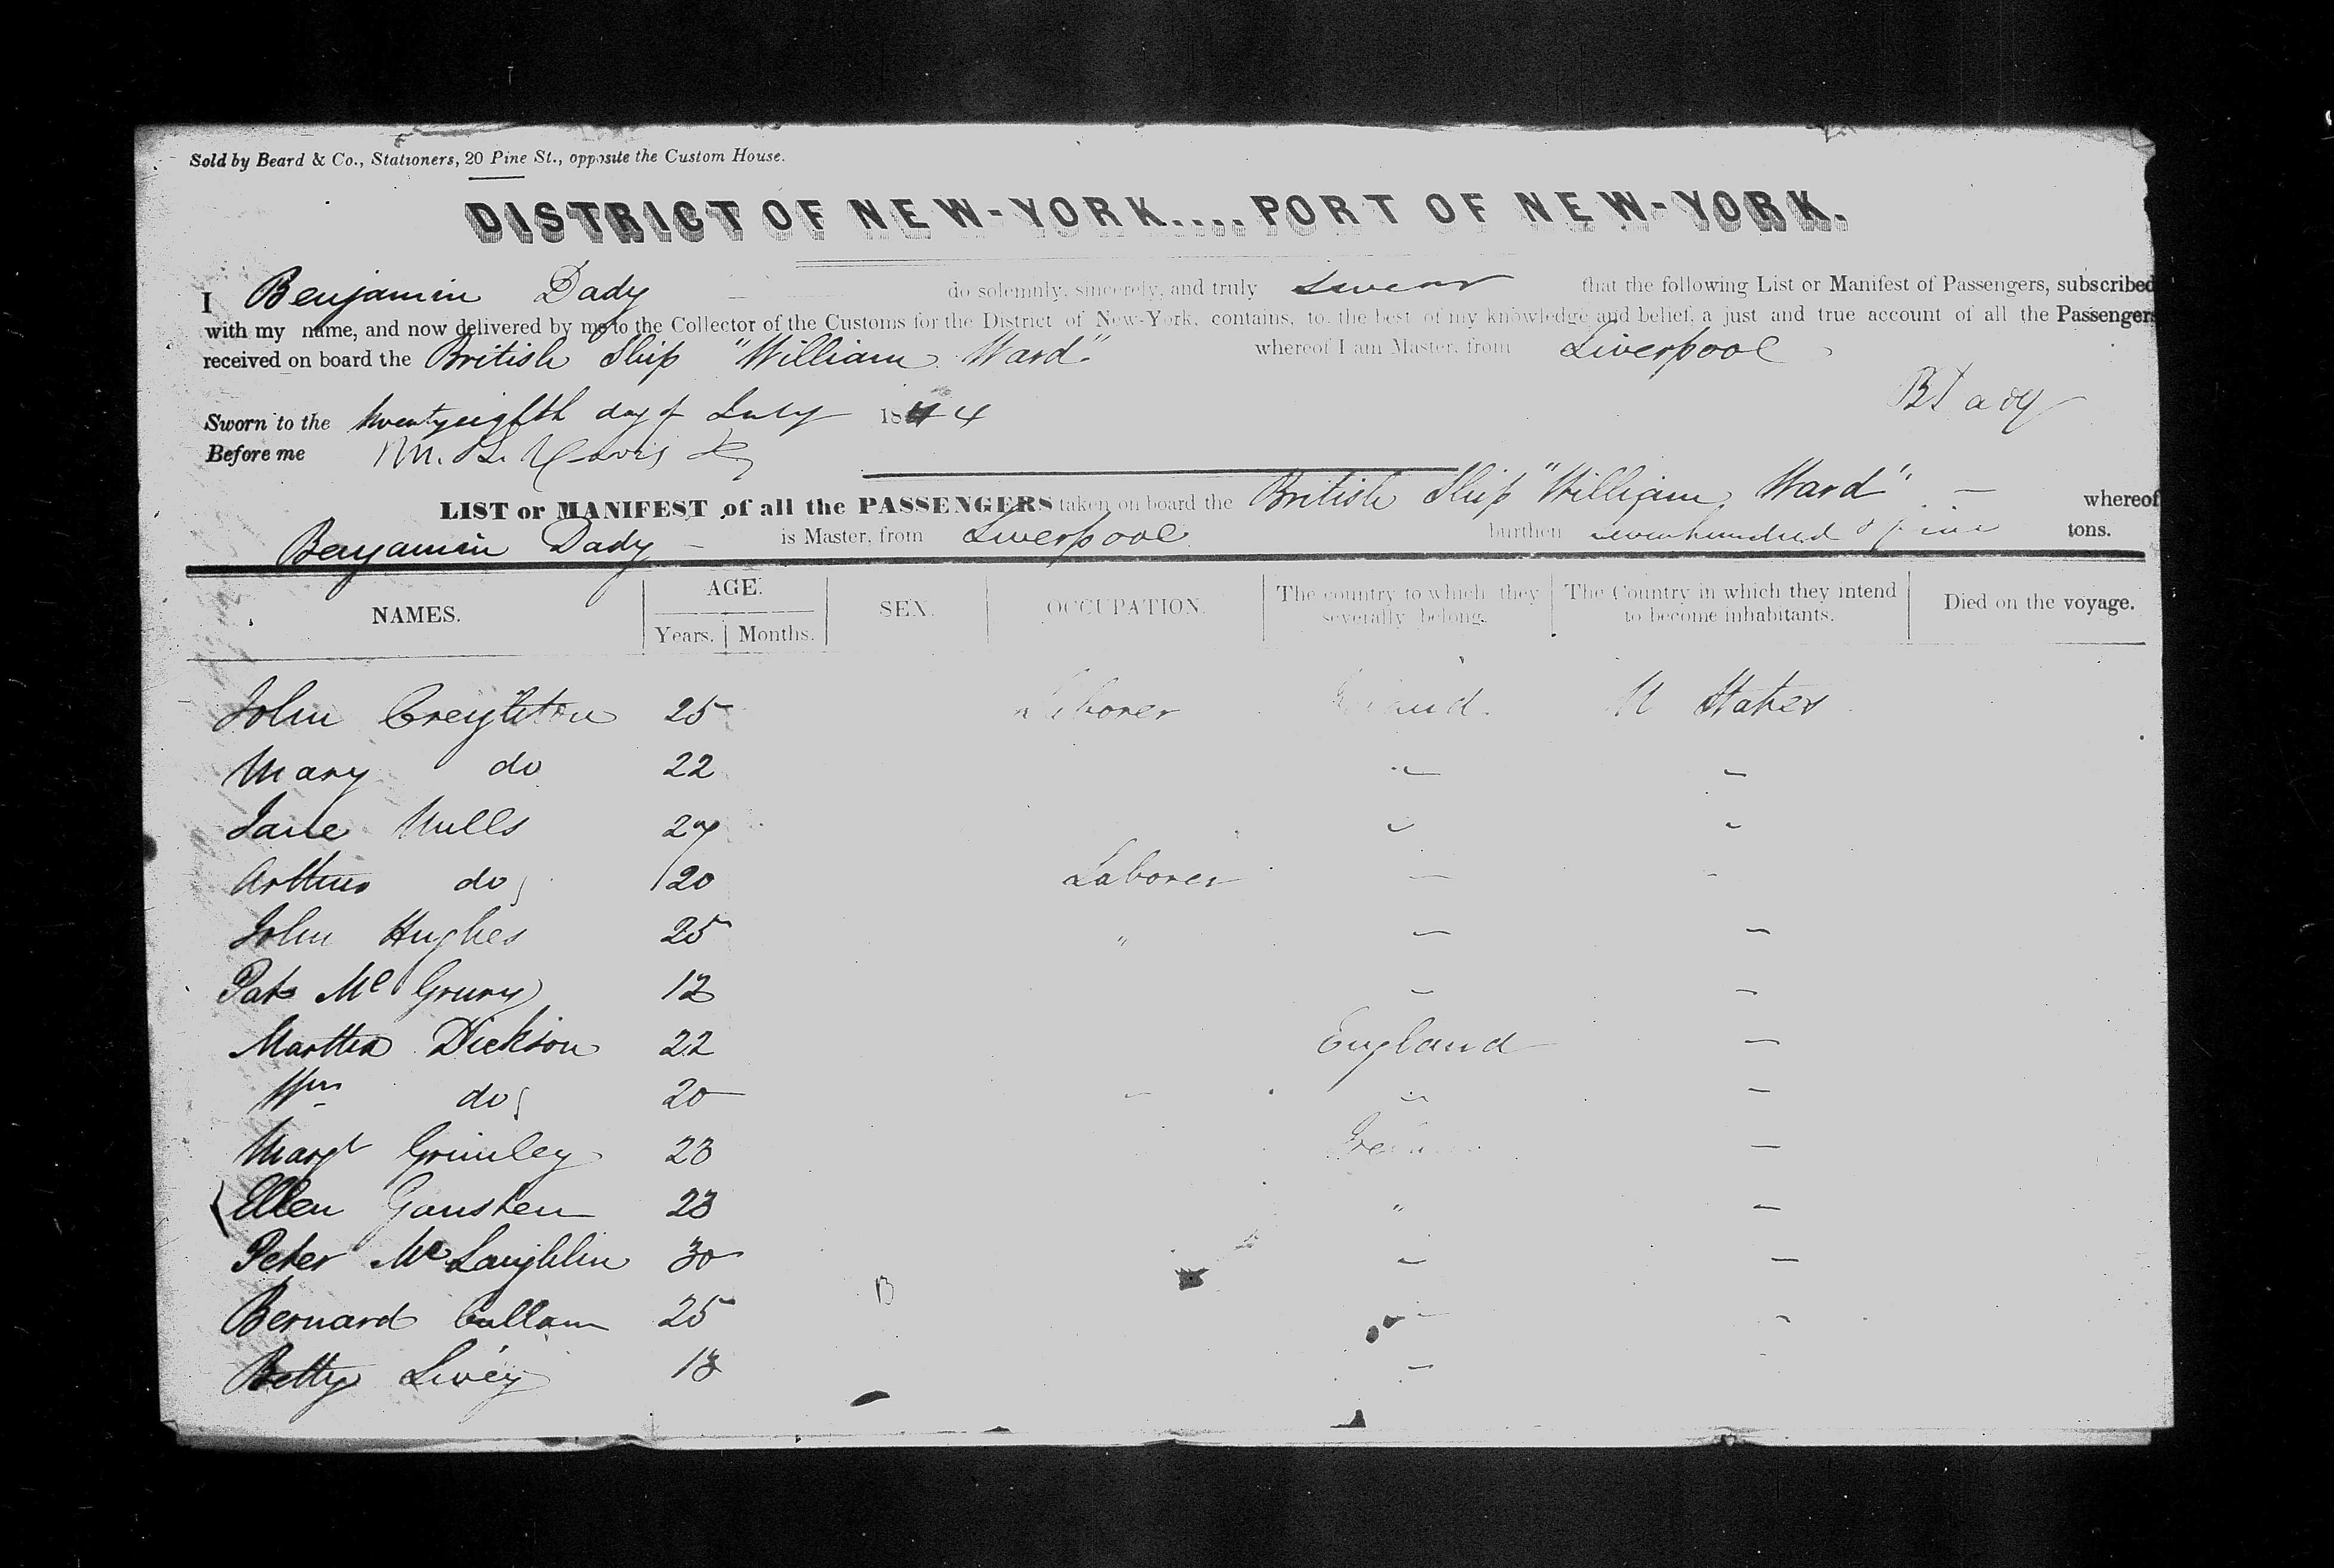 Sold by Beard & Co., Stationers, 20 Pine St., opposite the Custom House.
DISTRICT OF NEW-YORK....PORT OF NEW-YORK.
I Benjamin Dady do solemnly, sincerely, and truly swear that the following List or Manifest of Passengers, subscribed
with my name, and now delivered by me to the Collector of the Customs for the District of New-York, contains, to the best of my knowledge and belief, a just and true account of all the Passengers
received on board the British Ship "William Ward" whereof I am Master, from Liverpool
B Dady
Sworn to the twentyeighth day of July 1844
Before me
LIST or MANIFEST of all the PASSENGERS taken on board the British Ship "William Ward" whereof
Benjamin Dady is Master, from Liverpool burthen sevenhundred tons.
NAMES. AGE. Years. Months. SEX. OCCUPATION. The country to which they severally belong. The Country in which they intend to become inhabitants. Died on the voyage.
John Creighton 25 Laborer Ireland. U States
Mary do 22
Jane Mills 27
Arthur do 20 Laborer
John Hughes 25 "
Pat McGrury 12
Martha Dickson 22 England
Wm do 20
Margt Grimley 23 Ireland
Ellen 23 "
Peter McLaughlin 30
Bernard Cullam 25
Betty 13